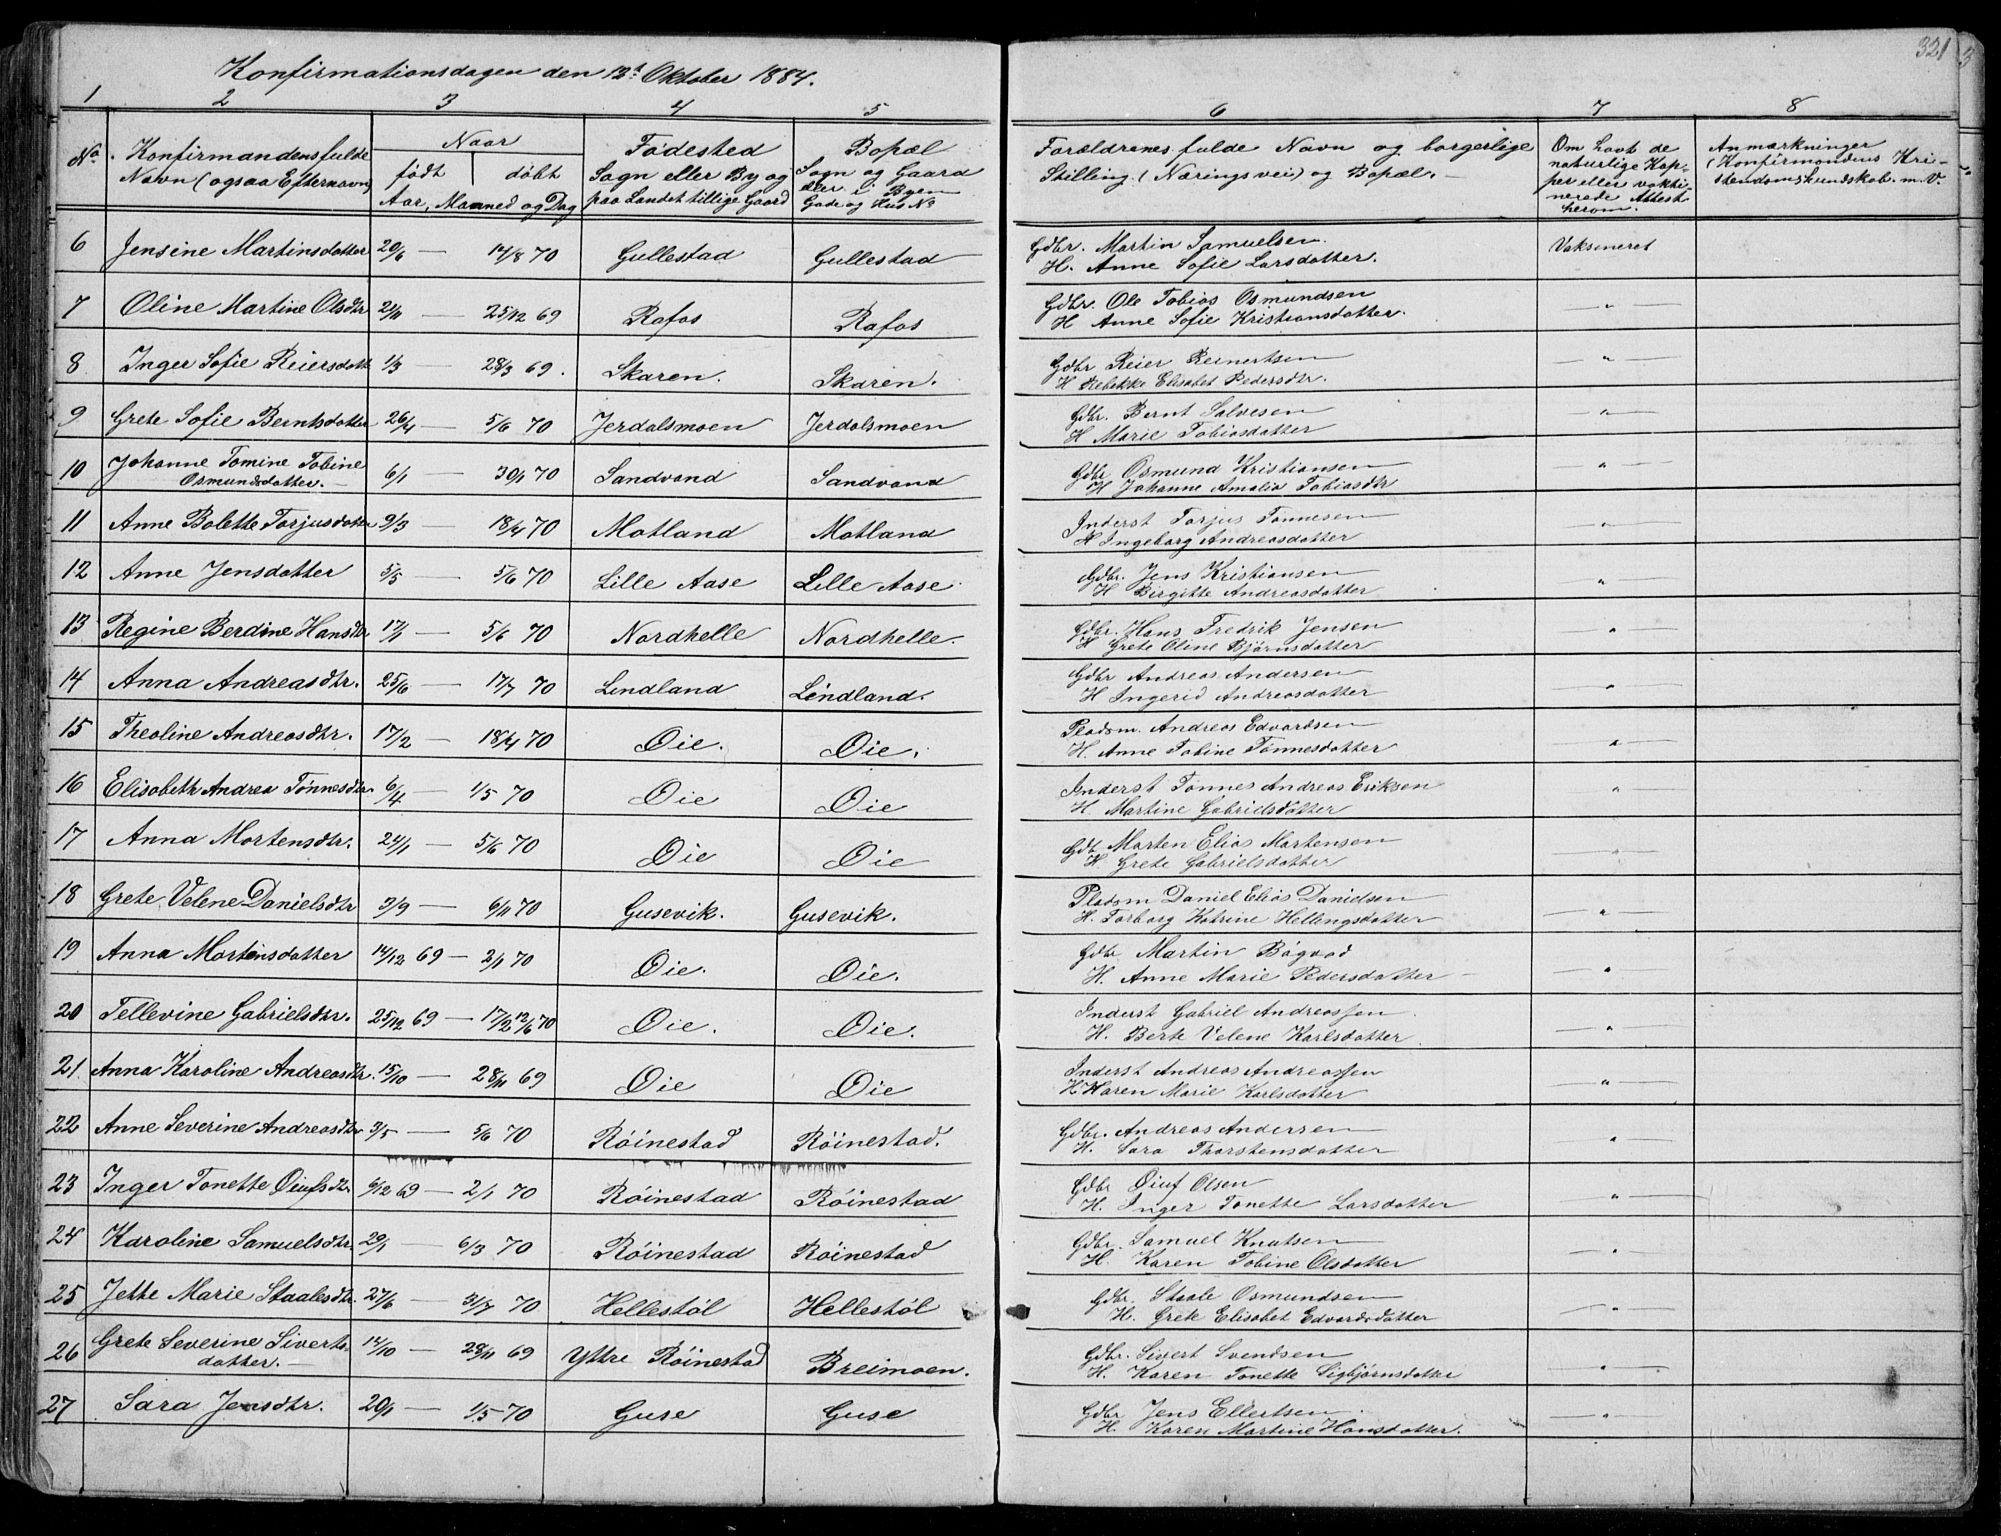 321
Konfirmationsdagen den 12t Oktober 1884.
1 2 3 4 5 6 7 8
No. Konfirmandens fulde Navn (ogsaa Efternavn)
Naar
født døbt
Aar, Maaned og Dag
Fødested
Sogn eller By og
paa Landet tillige Gaard
Bopæl
Sogn og Gaard
eller i Byen
Gade og Hus No
Forældrenes fulde Navn og borgerlige
Stilling (Næringsvei) og Bopæl.
Om havt de
naturlige Kop-
per eller vakti-
nerede Attest
herom.
Anmærkninger
(Konfirmandens Kri-
stendomskundskab. m. V.
6 Jensine Martinsdatter 20/6 — 14/8 70 Gullestad Gullestad Gdbr. Martin Samuelsen. Vaksineret
H. Anne Sofie Larsdatter.
7 Oline Martine Olsdtr 2/11 — 25/12 69 Rafos Rafos Gdbr. Ole Tobias Osmundsen — " —
H Anne Sofie Kristiansdatter.
8 Inger Sofie Reiersdatt 1/3 — 28/3 69. Skaren. Skaren. Gdbr Reier Reinertsen — " —
H Rebekke Elisabet Pedersdtr.
9 Grete Sofie Berntsdatter 26/4 — 5/6 70 Jerdalsmoen Jerdalsmoen Gdbr. Bernt Salvesen — " —
H Marie Tobiasdatter
10 Johanne Tomine Tobine 6/1 — 30/1 70 Sandvand Sandvand Gdbr Osmund Kristiansen " —
Osmundsdatter. — H Johanne Amalia Tobiasdtr
11 Anne Bolette Torjusdatter 9/3 — 18/4 70 Motland Motland Inderst Torjus Tønnesen — " —
H Ingeborg Andreasdatter
12 Anne Jensdatter 5/5 — 5/6 70 Lille Aase Lille Aase Gdbr. Jens Kristiansen — " —
H Birgitte Andreasdatter
13 Regine Berdine Hansdtr 17/1 — 5/6 70 Nordhelle Nordhelle. Gdbr. Hans Fredrik Jensen — " —
H Grete Oline Bjørnsdatter
14 Anna Andreasdtr. 25/6 — 17/7 70 Lindland Lindland. Gdbr Andreas Andersen — " —
H Ingerid Andreasdatter
15 Theoline Andreasdtr. 17/2 — 18/4 70 Øie. Øie. Pladsm. Andreas Edvardsen — " —
H. Anne Tobine Tønnesdatter
16 Elisabeth Andrea Tønnesdtr. 6/4 — 1/5 70 Øie Øie Inderst Tønnes Andreas Eriksen — " —
H. Martine Gabrielsdatter
17 Anna Mortensdtr. 24/1 — 5/6 70 Øie Øie Gdb Morten Elias Mortensen — " —
H. Grete Gabrielsdatter
18 Grete Velene Danielsdtr 3/9 — 6/11 70 Gusevik. Gusevik. Pladsm Daniel Elias Danielsen
H. Torborg Katrine Hellengsdatter — " —
19 Anna Mortensdatter 14/12 69 — 2/1 70 Øie. Øie. Gdbr Martin Bøgvad
H. Anne Marie Pedersdatter — "
20 Tellevine Gabrielsdtr. 25/12 69 — 17/2 12/6 70 Øie. Øie. Inderst Gabriel Andreassen
H. Berte Velene Karlsdatter — " —
21. Anna Karoline Andreasdtr. 15/10 — 28/11 69 Øie Øie Inderst Andreas Andreassen " —
H Karen Marie Karlsdatter
22 Anne Severine Andreasdtr 3/5 — 5/6 70 Röinestad Röinestad. Gdbr. Andreas Andersen — " —
H. Sara Thorstensdatter
23 Inger Tonette Øiufsdtr 6/12 69 — 2/1 70 Röinestad Röinestad Gdbr Øiuf Olsen "
H. Inger Tonette Larsdatter
24 Karoline Samuelsdtr. 29/1 — 6/3 70 Röinestad Röinestad Gdbr. Samuel Knutsen "
H. Karen Tobine Olsdatter
25 Jette Marie Staalesdtr. 27/6 — 31/7 70 Hellestöl Hellestöl Gdbr. Staale Osmundsen — " —
H. Grete Elisabet Edvardsdatter
26 Grete Severine Siverts- 14/10 — 28/11 69 Yttre Röinestad Breimoen. Gdbr. Sivert Svendsen — " —
datter. — H. Karen Tonette Sigbjørnsdatter
27 Sara Jensdtr. 20/1 — 1/5 70 Guse Guse Gdbr Jens Ellertsen. — " —
H. Karen Martine Hansdatter.